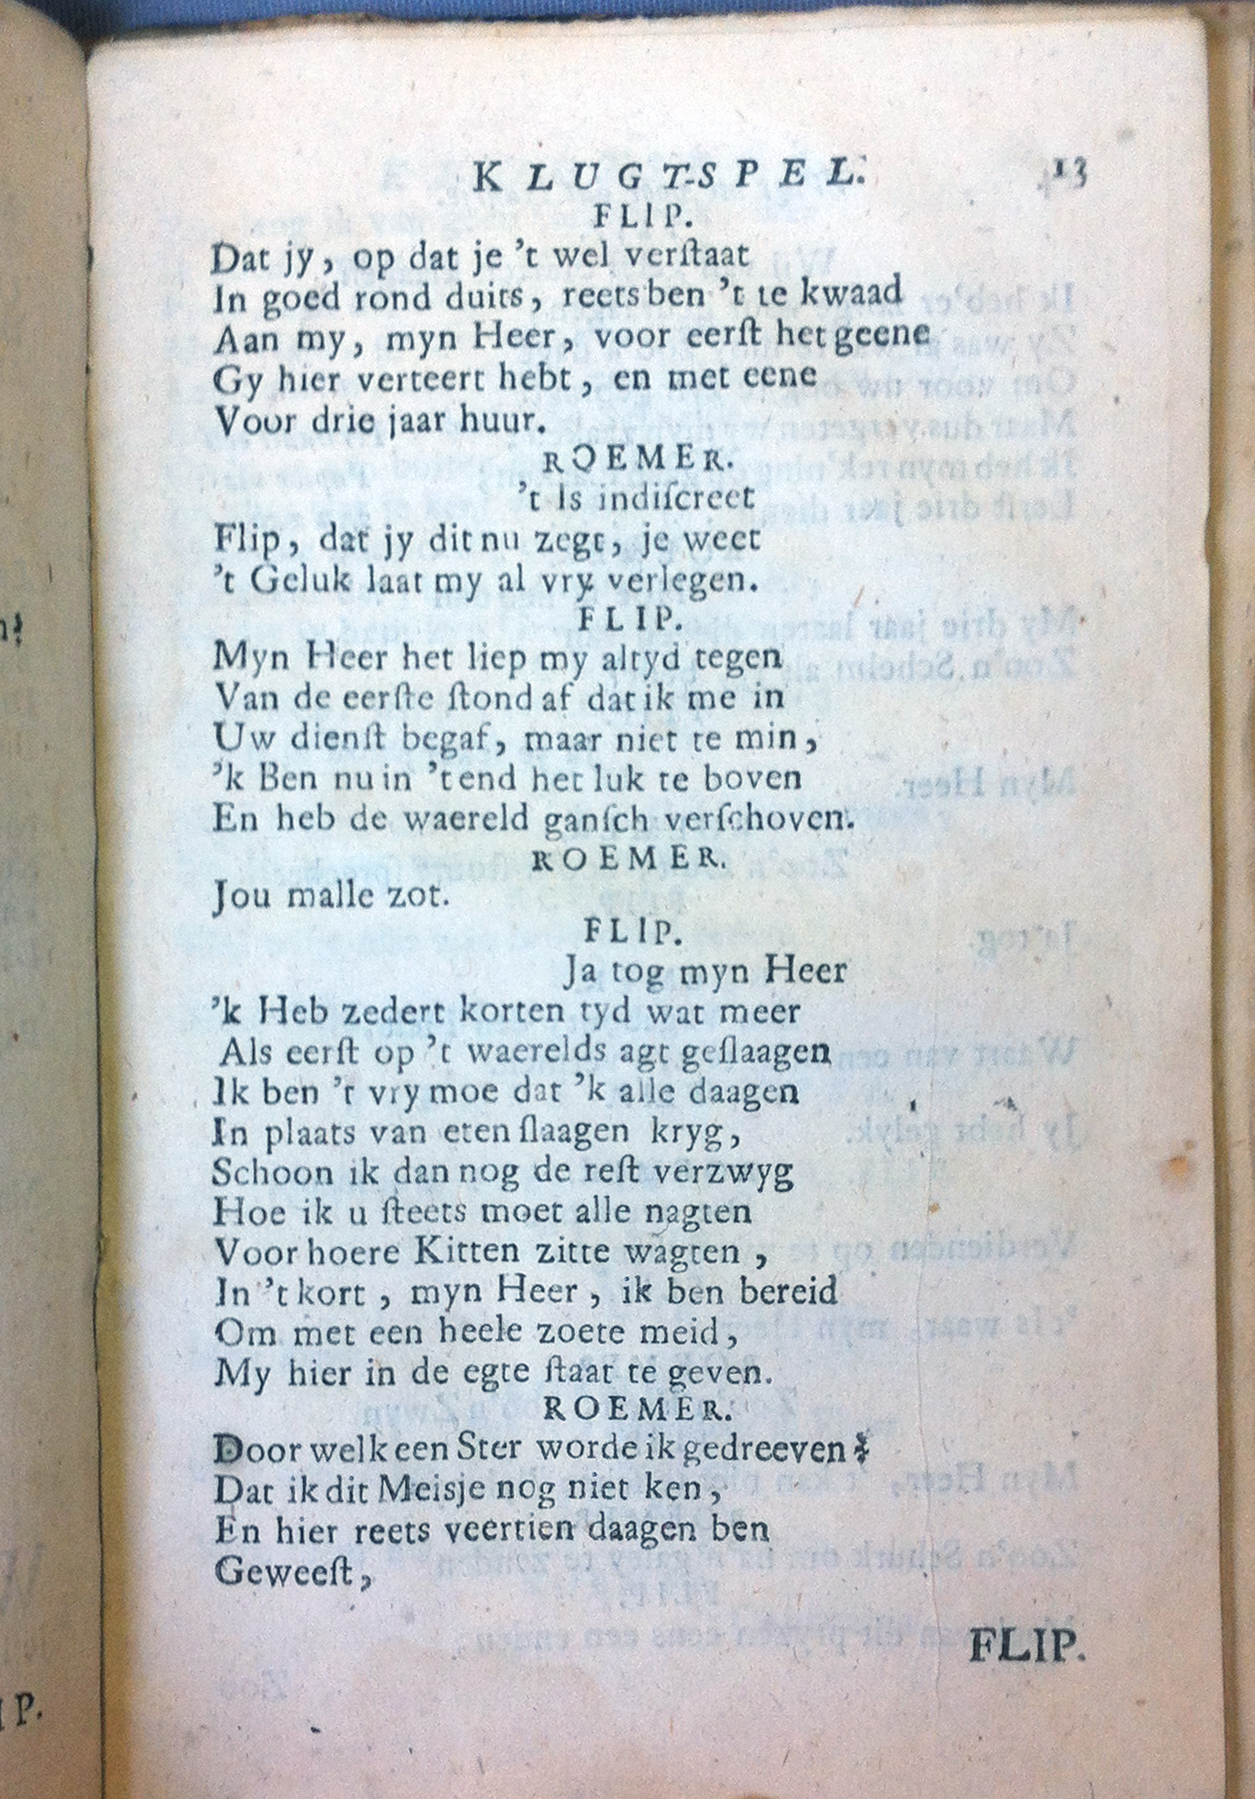 KLUGT-SPEL. 13
FLIP.
Dat jy, op dat je 't wel verſtaat
In goed rond duits, reets ben 't te kwaad
Aan my, myn Heer, voor eerſt het geene
Gy hier verteert hebt, en met eene
Voor drie jaar huur.
ROEMER.
't Is indiſcreet
Flip, dat jy dit nu zegt, je weet
't Geluk laat my al vry verlegen.
FLIP.
Myn Heer het liep my altyd tegen
Van de eerſte ſtond af dat ik me in
Uw dienſt begaf, maar niet te min,
'k Ben nu in 't end het luk te boven
En heb de waereld ganſch verſchoven.
ROEMER.
Jou malle zot.
FLIP.
Ja tog myn Heer
'k Heb zedert korten tyd wat meer
Als eerſt op 't waerelds agt geſlaagen
Ik ben 't vry moe dat 'k alle daagen
In plaats van eten ſlaagen kryg,
Schoon ik dan nog de reſt verzwyg
Hoe ik u ſteets moet alle nagten
Voor hoere Kitten zitte wagten,
In 't kort, myn Heer, ik ben bereid
Om met een heele zoete meid,
My hier in de egte ſtaat te geven.
ROEMER.
Door welk een Ster worde ik gedreeven?
Dat ik dit Meisje nog niet ken,
En hier reets veertien daagen ben
Geweeſt,
FLIP.